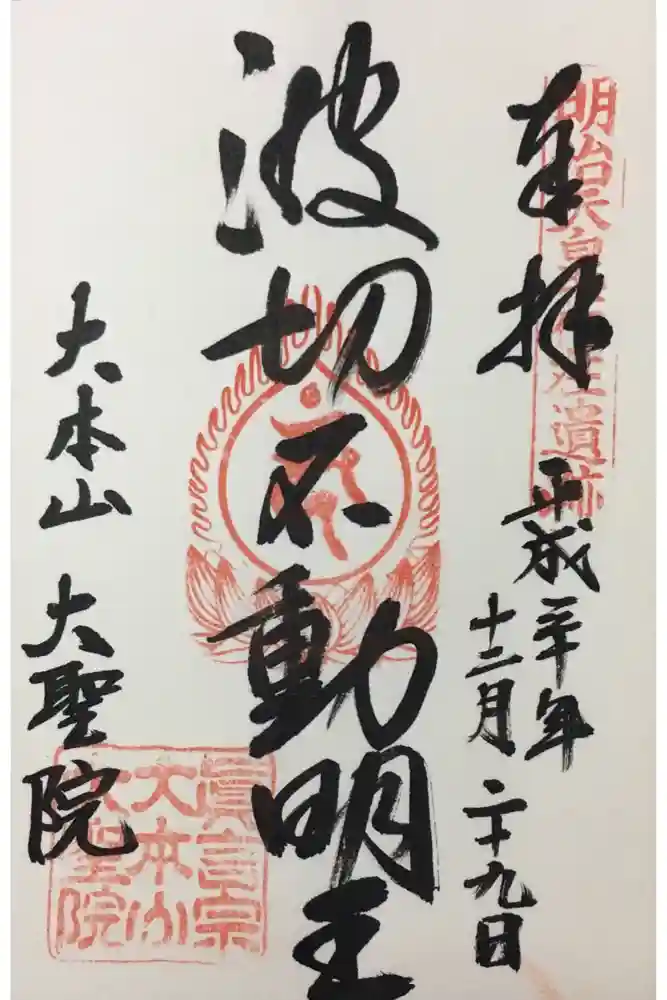 明治天皇
在遺跡
奉拝
平成三十年
十二月二十九日
波切不動明王
大本山 大聖院
眞言宗
大本山
大聖院